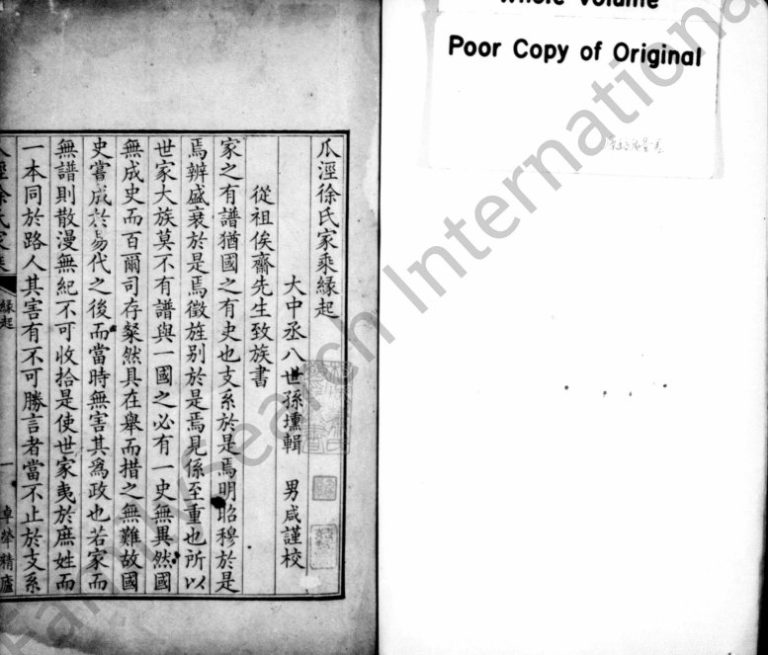 Whole Volume
Poor Copy of Original
瓜涇徐氏家乘緣起
大中丞八世孫壎輯　男咸謹校
從祖俟齋先生致族書
家之有譜猶國之有史也支系於是焉明昭穆於是
焉辨盛衰於是焉徵旌别於是焉見係至重也所以
世家大族莫不有譜與一國之必有一史無異然國
無成史而百爾司存粲然具在舉而措之無難故國
史嘗成於易代之後而當時無害其爲政也若家而
無譜則散漫無紀不可收拾是使世家夷於庶姓而
一本同於路人其害有不可勝言者當不止於支系
瓜涇徐氏家乘
緣起
一
卓犖精廬
FamilySearch International